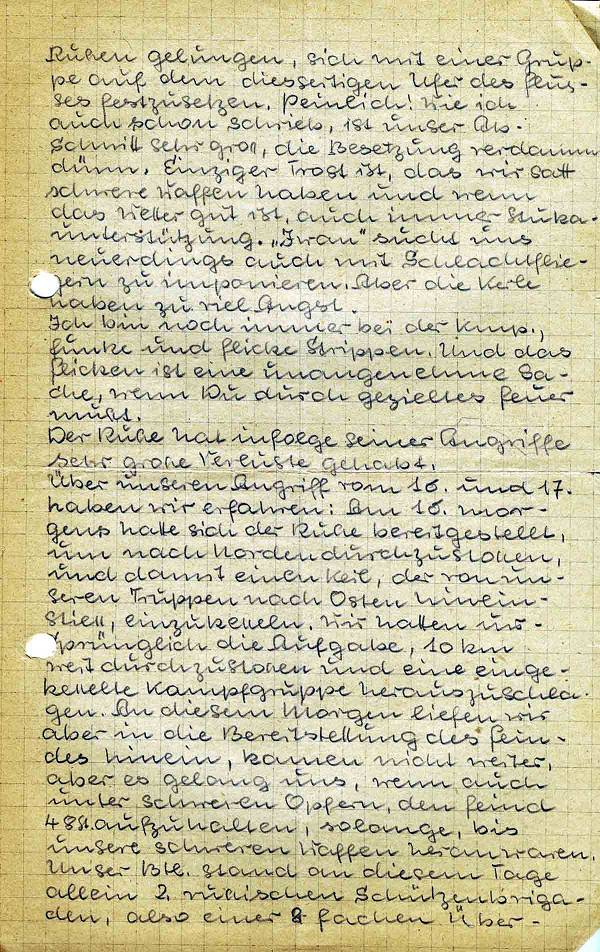 Rußen gelungen, sich mit einer Grup-
pe auf dem diesseitigen Ufer des Flus-
ses festzusetzen. Peinlich! Wie ich
auch schon schrieb, ist unser Ab-
schnitt sehr groß, die Besetzung verdammt
dünn. Einziger Trost ist, das wir satt
schwere Waffen haben und wenn
das Wetter gut ist, auch immer Stuka-
unterstützung. „Iwan“ sucht uns
neuerdings auch mit Schlachtflie-
gern zu imponieren. Aber die Kerle
haben zu viel Angst.
Ich bin noch immer bei der Komp.,
funke und flicke Strippen. Und das
Flicken ist eine unangenehme Sa-
che, wenn Du durch gezieltes Feuer
mußt.
Der Ruße hat infolge seiner Angriffe
sehr große Verluste gehabt.
Über unseren Angriff vom 16. und 17.
haben wir erfahren: Am 16. mor-
gens hatte sich der Ruße bereitgestellt,
um nach Norden durchzustoßen,
und damit einen Keil, der von un-
seren Truppen nach Osten hinein-
stieß, einzukesseln. Wir hatten ur-
sprünglich die Aufgabe, 10 km
weit durchzustoßen und eine einge-
kesselte Kampfgruppe herauszuschla-
gen. An diesem Morgen liefen wir
aber in die Bereitstellung des Fein-
des hinein, kamen nicht weiter,
aber es gelang uns, wenn auch
unter schweren Opfern, den Feind
48 St. aufzuhalten, solange, bis
unsere schweren Waffen heran waren.
Unser Btl. stand an diesem Tage
allein 2 rußischen Schützenbriga-
den, also einer 8 fachen Über-